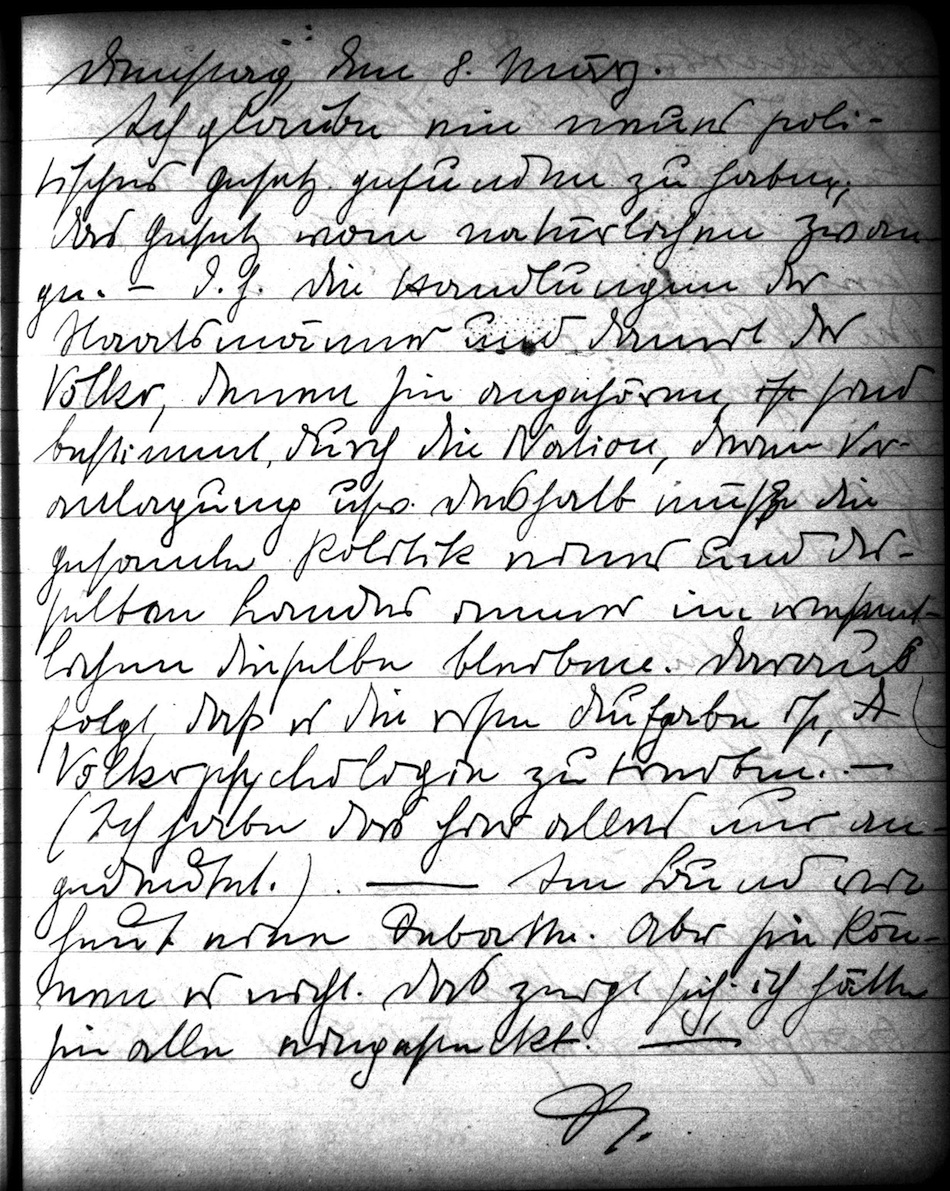 Dienstag, den 8. März.
Ich glaube ein neues poli-
tisches Gesetz gefunden zu haben,
das Gesetz vom natürlichen Zwan-
ge. – D. h. die Handlungen der
Staatsmänner und damit der
Völker, denen sie angehören, sind
bestimmt durch die Nation, deren Ver-
anlagung usw. Deshalb muß die
gesamte Politik eines und des-
selben Landes immer im wesent-
lichen dieselbe bleiben. Daraus
folgt, daß es die erste Aufgabe ist,
Völkerpsychologie zu treiben. –
(Ich habe das hier alles nur an-
gedeutet.). — Im Bund war
heut eine Debatte. Aber sie kön-
nen es nicht. Das zeigt sich: ich hätte
sie alle eingesteckt. —